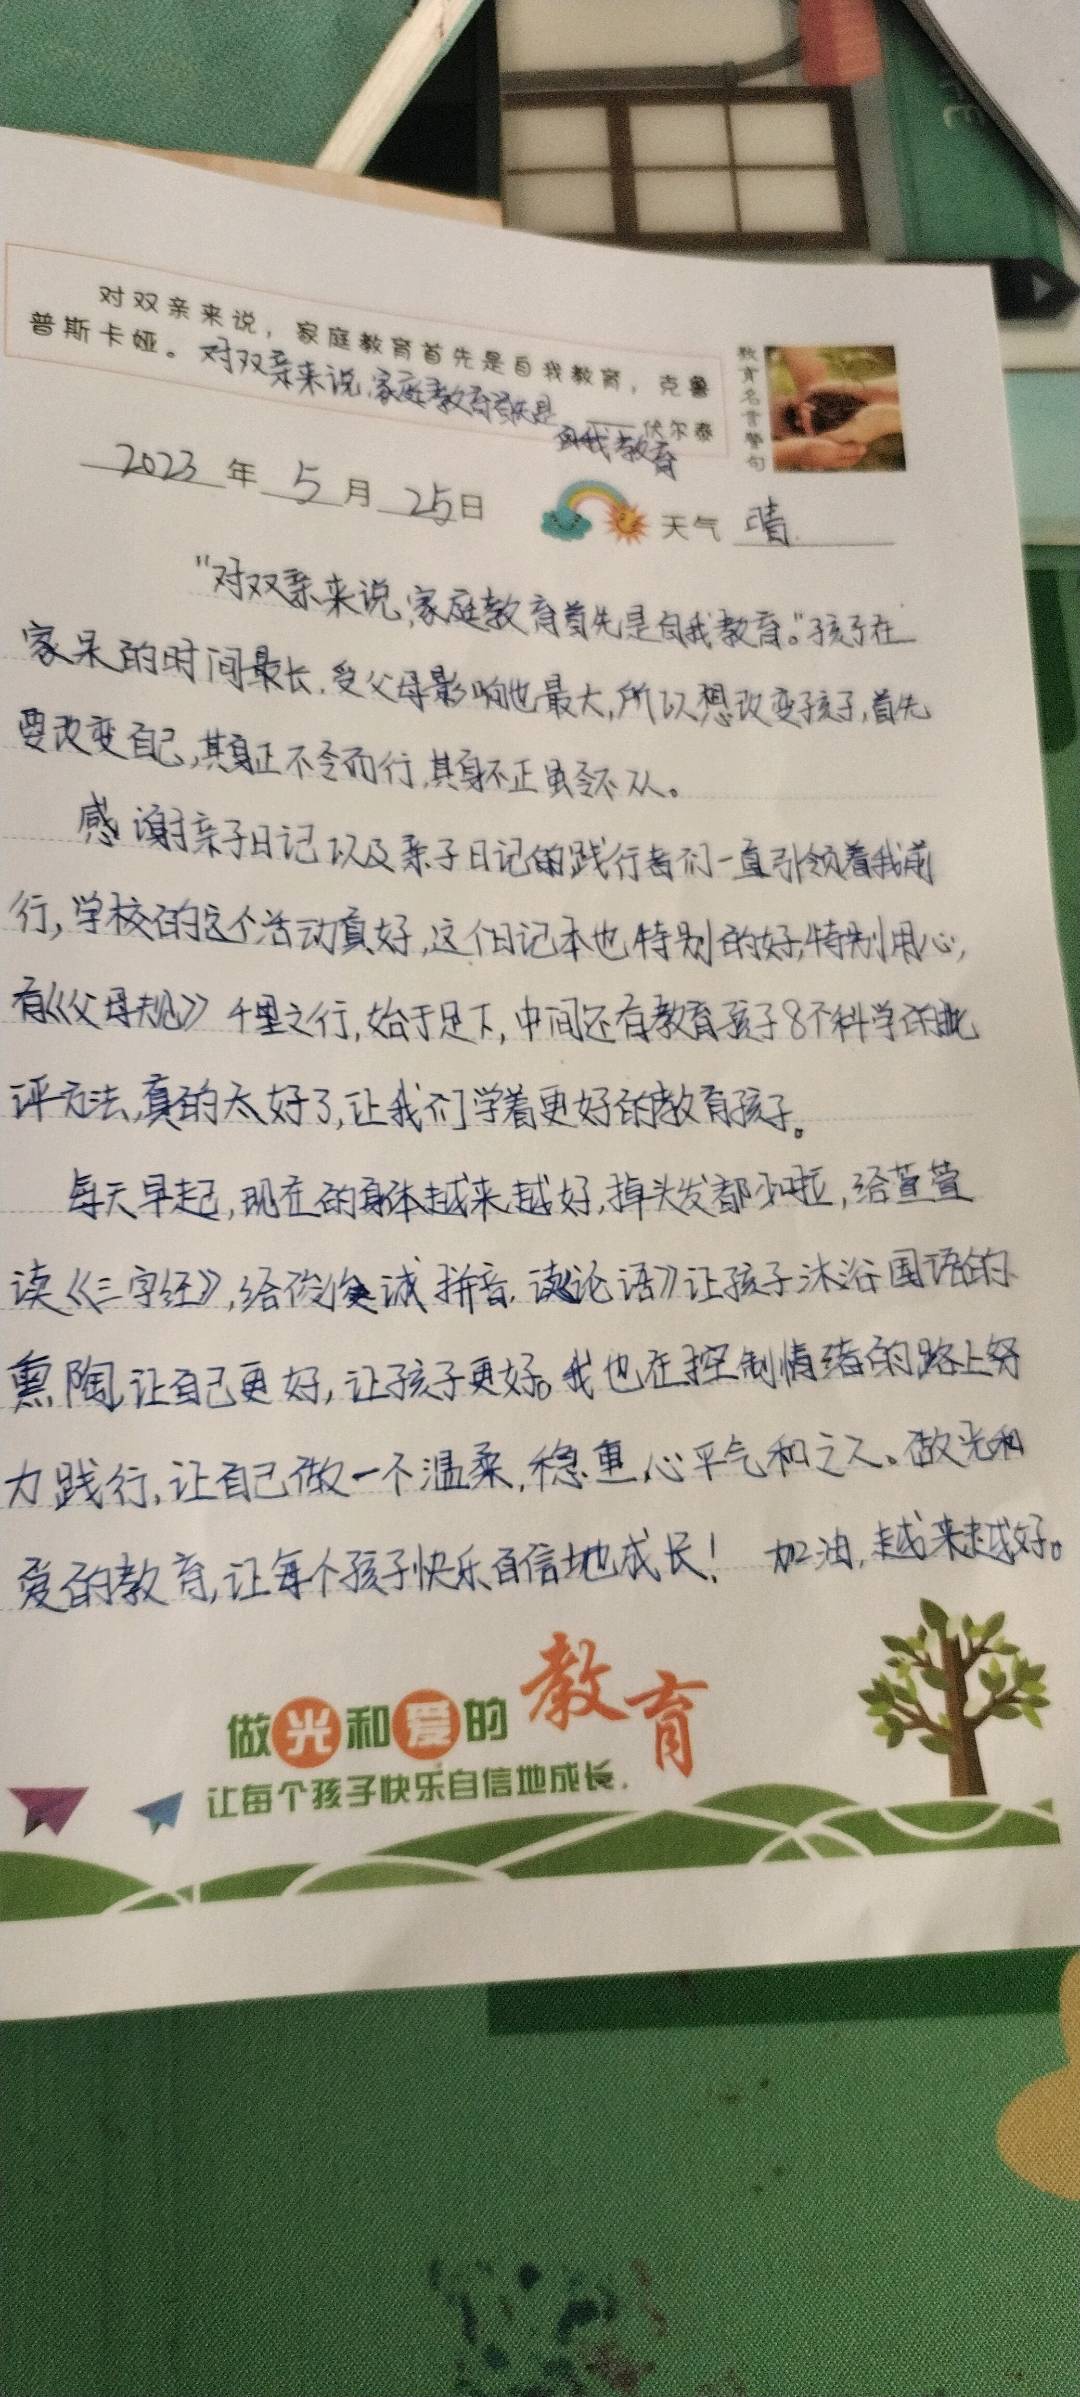 对双亲来说，家庭教育首先是自我教育，克鲁
普斯卡娅。对双亲来说,家庭教育首先是
——伏尔泰
自我教育
教育名言警句
2023年5月25日
天气 晴
"对双亲来说,家庭教育首先是自我教育。"孩子在
家呆的时间最长,受父母影响也最大,所以想改变孩子,首先
要改变自己,其身正不令而行,其身不正虽令不从。
感谢亲子日记以及亲子日记的践行者们一直引领着我前
行,学校的这个活动真好,这个日记本也特别的好,特别用心,
有《父母规》千里之行,始于足下,中间还有教育孩子8个科学的批
评方法,真的太好了,让我们学着更好的教育孩子。
每天早起,现在的身体越来越好,掉头发都少啦,给萱萱
读《三字经》,给俊俊读拼音,读《论语》让孩子沐浴国语的
熏陶,让自己更好,让孩子更好。我也在控制情绪的路上努
力践行,让自己做一个温柔,稳重,心平气和之人。做光和
爱的教育,让每个孩子快乐自信地成长! 加油,越来越好。
做光和爱的教育
让每个孩子快乐自信地成长.